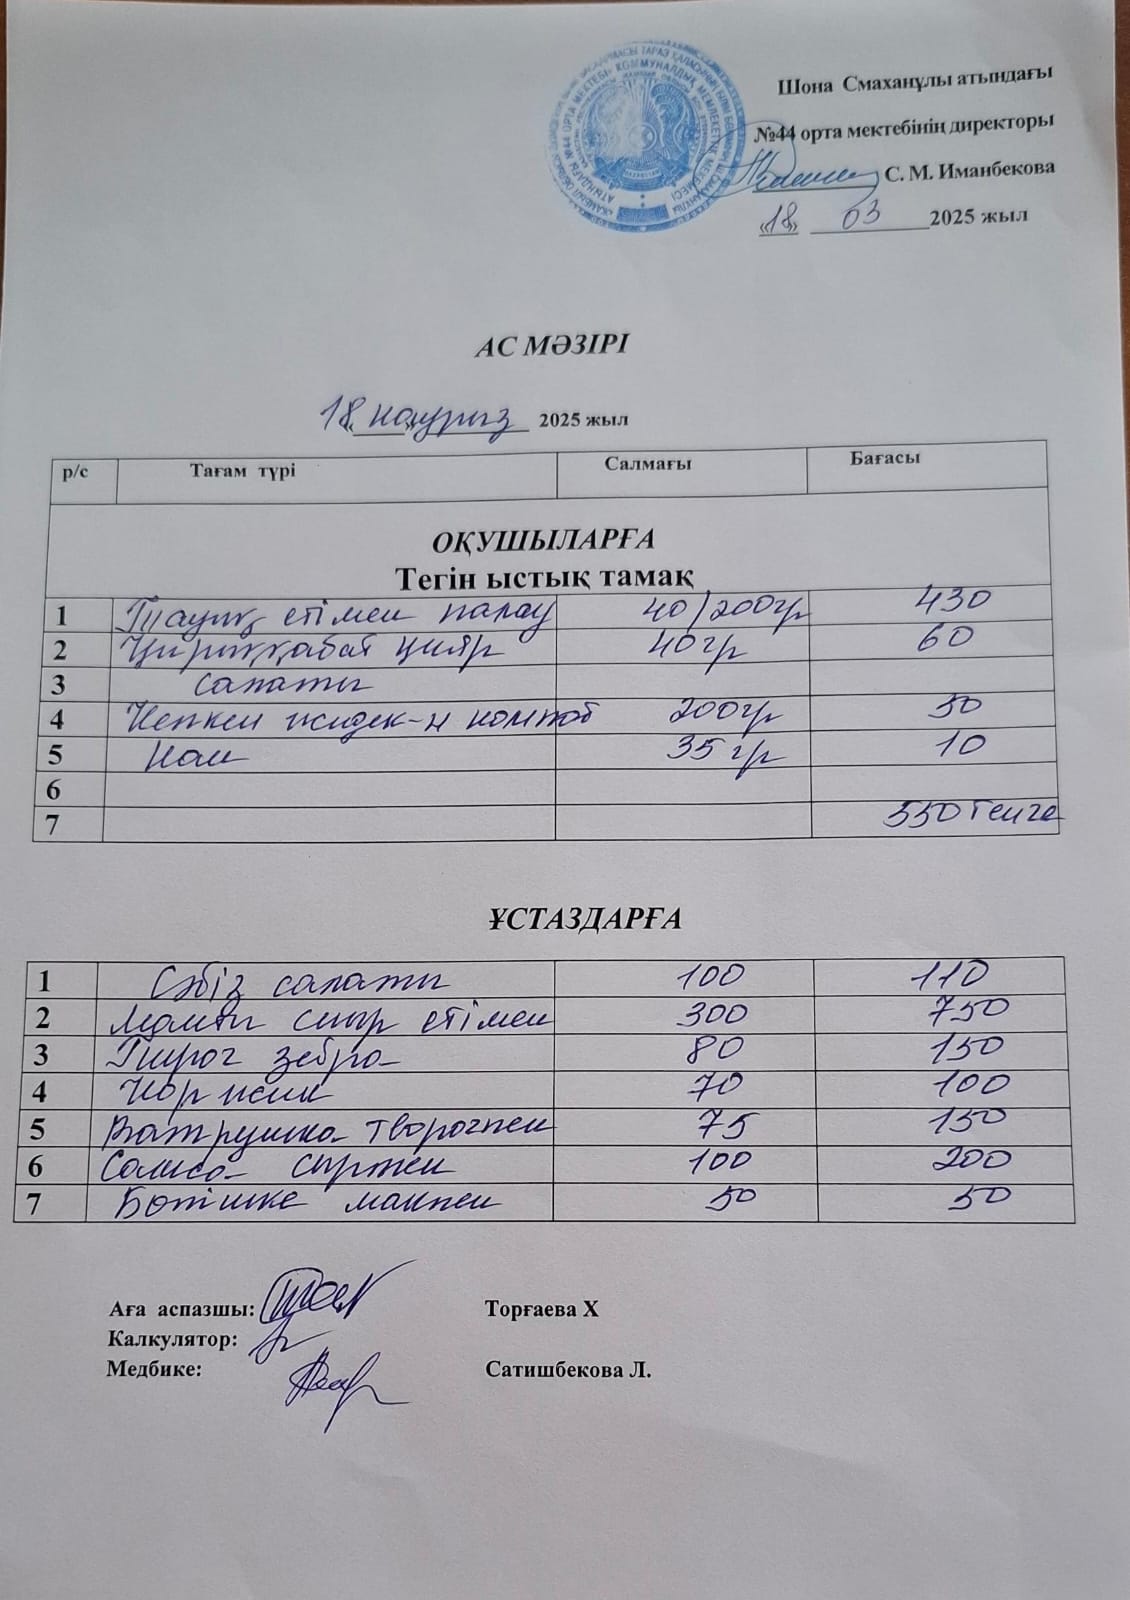 Шона Смаханұлы атындағы
№44 орта мектебінің директоры
С. М. Иманбекова
«18» 03 2025 жыл
АС МӘЗІРІ
«18» наурыз 2025 жыл
р/с Тағам түрі Салмағы Бағасы
ОҚУШЫЛАРҒА
Тегін ыстық тамақ
1 Тауық етімен палау 40/200гр 430
2 Қырыққабат қияр 40гр 60
3 салаты
4 Кепкен жидек-н компот 200гр 50
5 Нан 35гр 10
6
7 550 тенге
ҰСТАЗДАРҒА
1 Сәбіз салаты 100 110
2 Манты сиыр етімен 300 750
3 Пирог зебра 80 150
4 Коржик 70 100
5 Ватрушка творогпен 75 150
6 Самса сырмен 100 200
7 Бөтішке макпен 50 50
Аға аспазшы: Торғаева Х
Калкулятор:
Медбике: Сатишбекова Л.